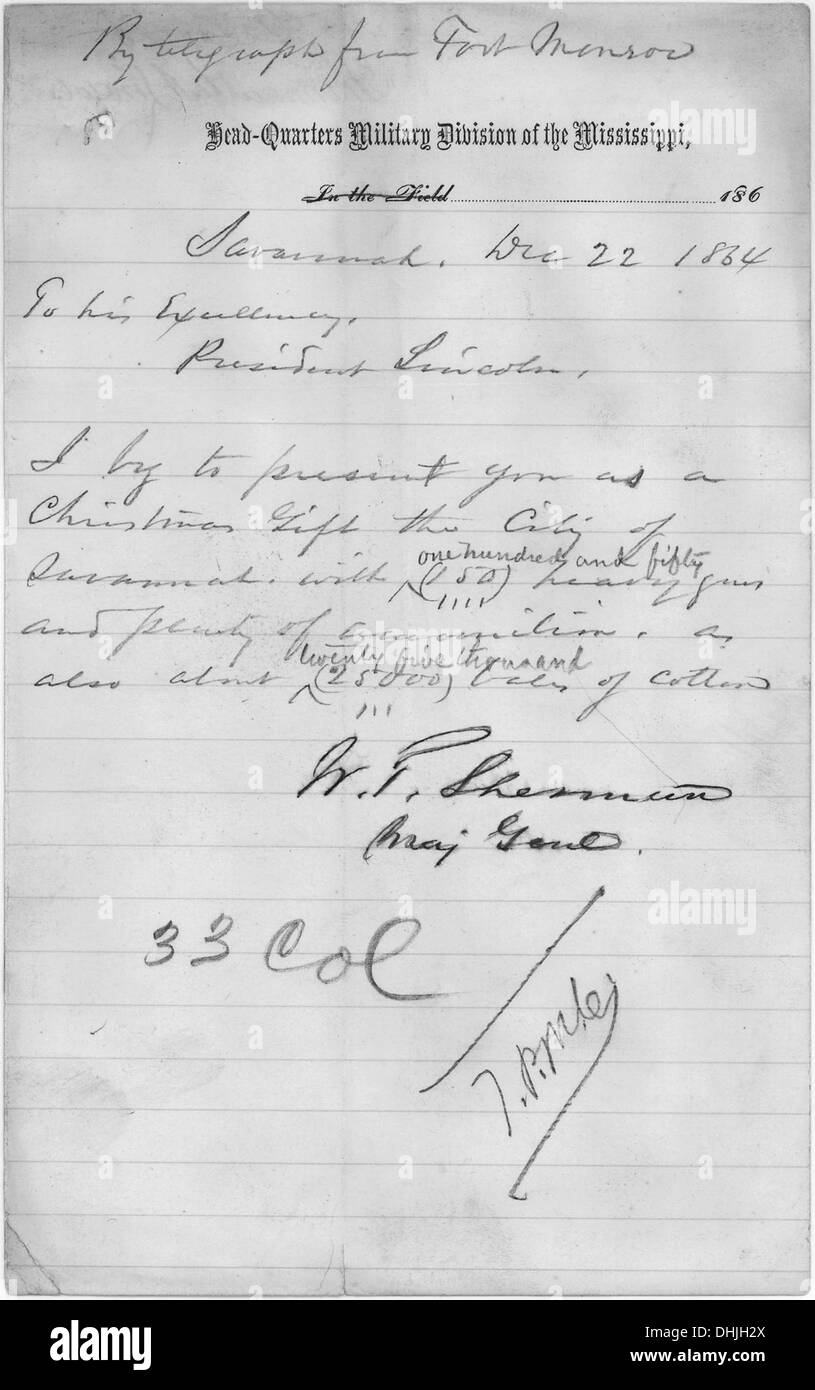 By telegraph from Fort Monroe
Head-Quarters Military Division of the Mississippi,
In the Field 186
Savannah. Dec 22 1864
To his Excellency,
President Lincoln,
I beg to present you as a
Christmas Gift the City of
one hundred and fifty
Savannah. with (150) heavy guns
and plenty of ammunition. as
twenty five thousand
also about (25000) bales of cotton
W. T. Sherman
Maj Genl.
33 Col
alamy
alamy
Image ID: DHJH2X
www.alamy.com